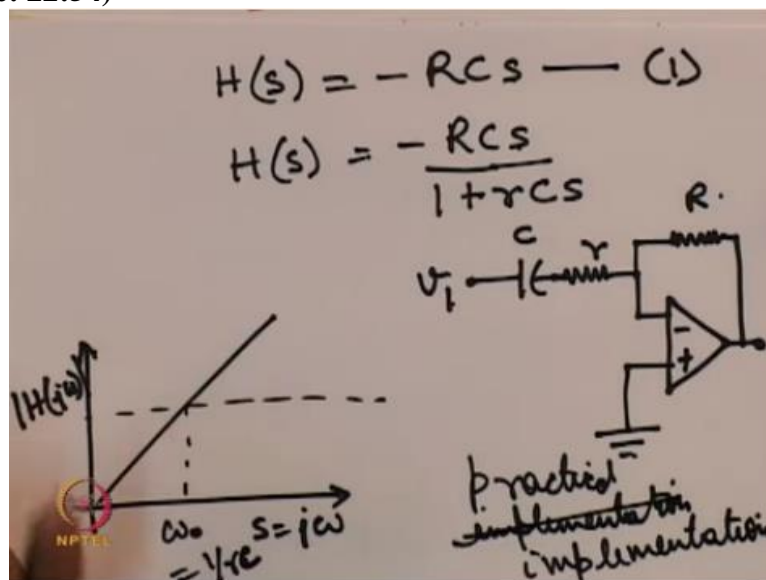 H(s) = - RCs — (1)
H(s) = - RCs
1 + rCs
R.
C
r
v₁
-
+
|H(jω)|
ω₀
s = jω
= 1/rc
practical
implementation
implementation
NPTEL